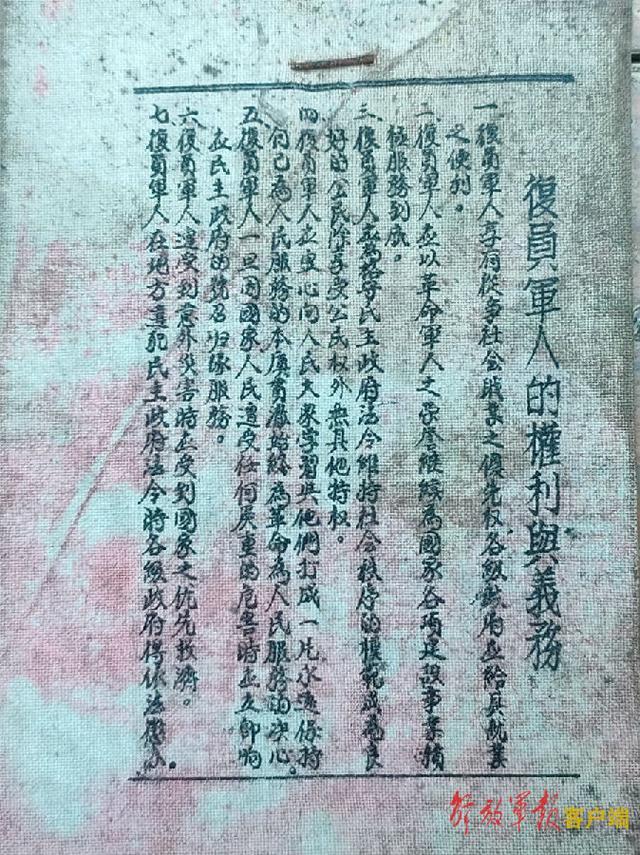 復員軍人的權利與義務
一、復員軍人享有從事社会職業之優先权，各級政府应給其就業
之便利。
二、復員軍人应以革命軍人之荣誉继续為國家各項建設事業積
極服務到底。
三、復員軍人应為恪守民主政府法令維持社会秩序的模範成為良
好的公民除享受公民权外無其他特权。
四、復員軍人应虚心向人民大眾学習與他們打成一片永遠保持
何已為人民服務的本质貫徹始终為革命為人民服務的决心。
五、復員軍人一旦国國家人民遭受任何严重的危害時应立即响
应民主政府的號召归隊服務。
六、復員軍人遭受到意外災害時应受到國家之优先救濟。
七、復員軍人在地方違犯民主政府法令時各級政府得依法惩办。
解放军报客户端